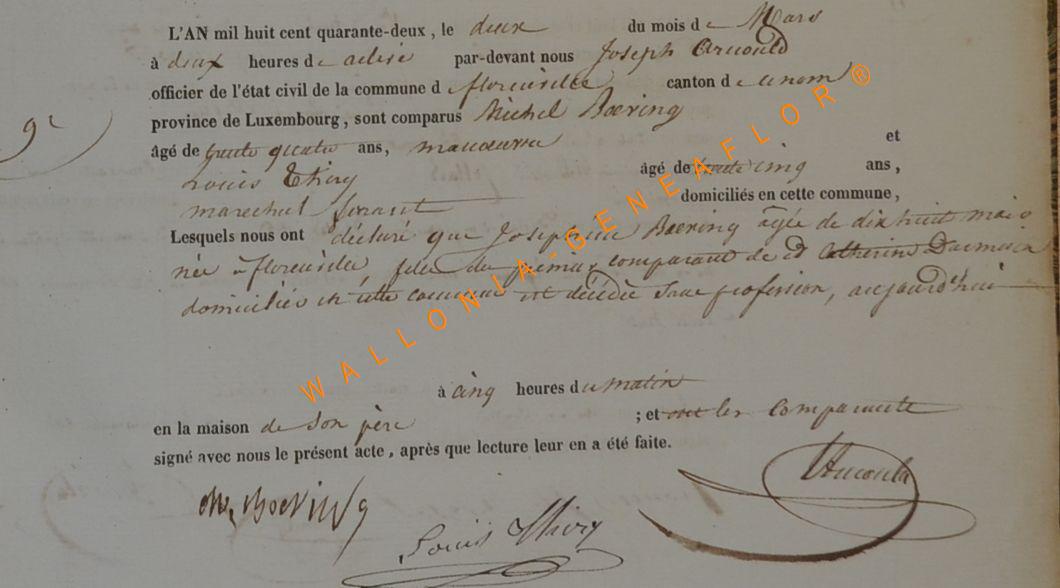 L'AN mil huit cent quarante-deux, le deux du mois de Mars
à deux heures de relevée par-devant nous Joseph Arnould
officier de l'état civil de la commune de florenville canton de
province de Luxembourg, sont comparus Michel Boering
9e
âgé de trente quatre ans, manoeuvre et
Louis Thiry âgé de trente cinq ans,
marechal ferrant domiciliés en cette commune,
Lesquels nous ont déclaré que Josephine Boering agée de dix huit mois
née à florenville, fille du premier comparant et de Catherine
domiciliés en cette commune est décédée sans profession, aujourd'hui
à cinq heures du matin
en la maison de son père ; et ont les comparants
signé avec nous le présent acte, après que lecture leur en a été faite.
Louis Thiry
WALLONIA-GENEAFLOR ®